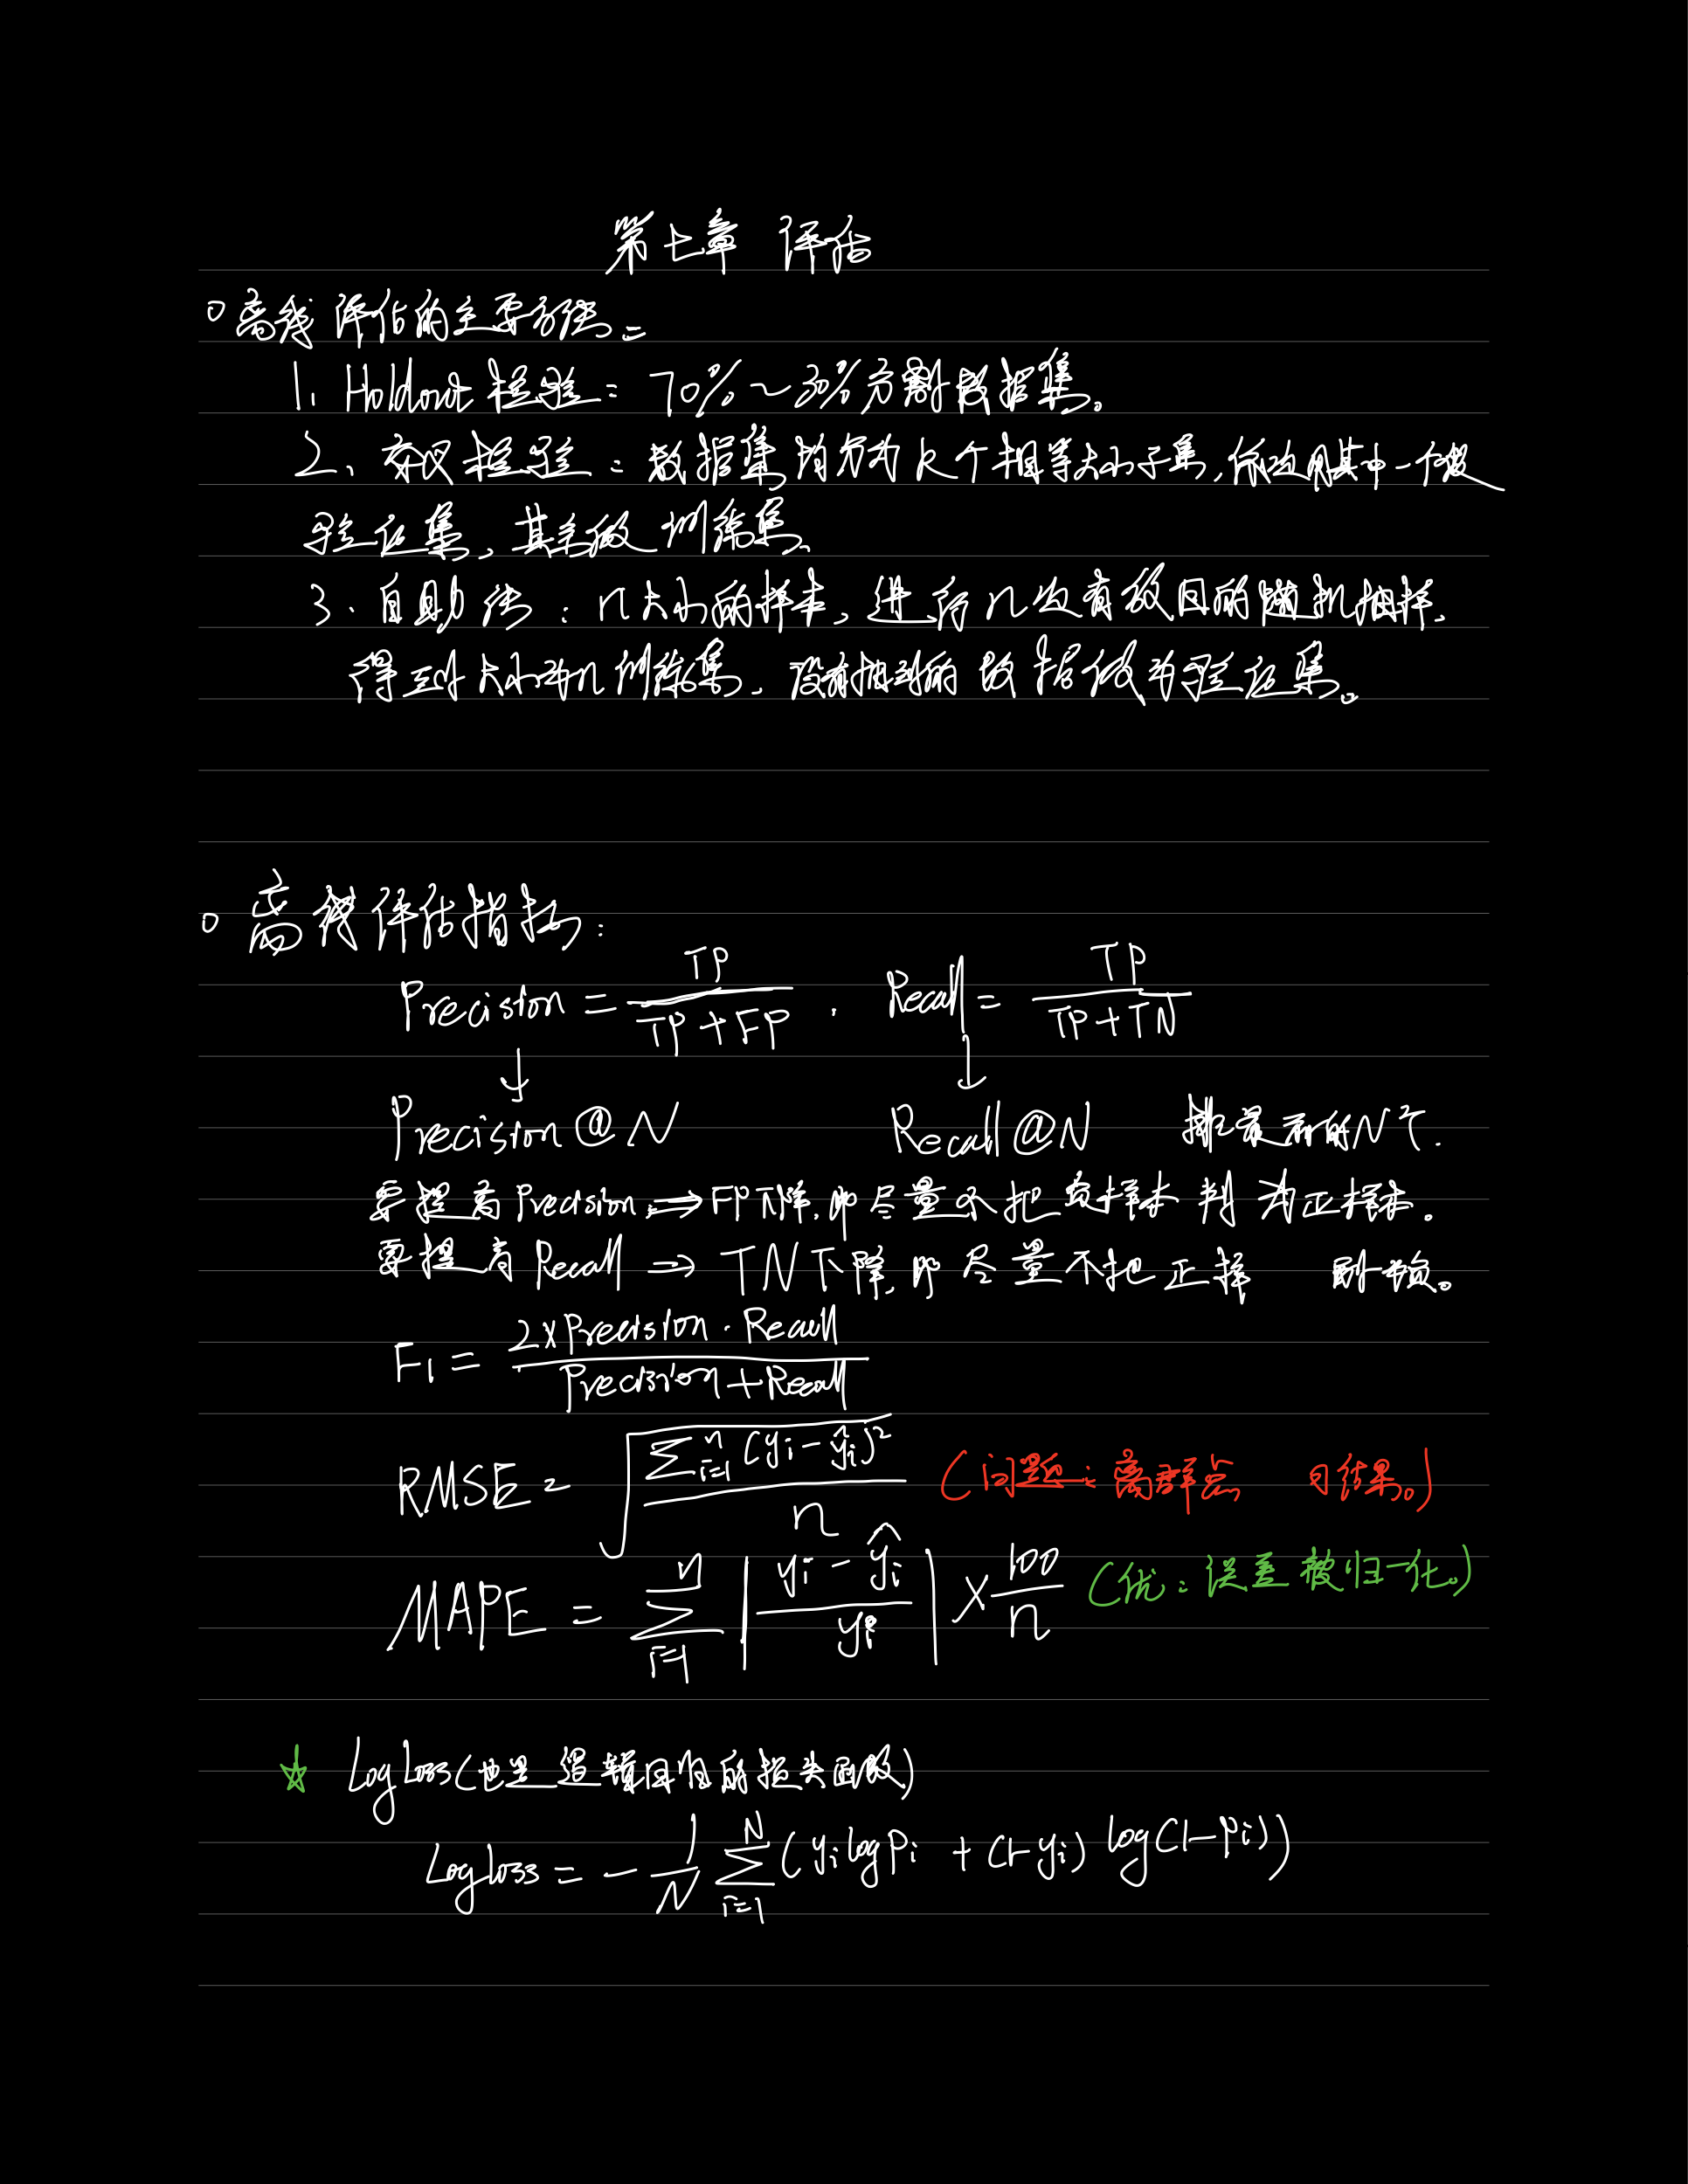 第七章 评估
离线评估的主要方法:
1. Holdout 检验: 70%~30%分割数据集。
2、交叉检验:数据集均分为k个相等大小子集,依次用其中一个做
验证集、其余做训练集、
3.自助法:n大小的样本,进行n次有放回的随机抽样、
得到大小为n训练集、没有抽到的数据做为验证集。
离线评估指标:
Precision = TP / (TP + FP) . Recall = TP / (TP + TN)
↓ ↓
Precision@N Recall@N 排最前的N个.
要提高Precision ⇒ FP下降,即尽量不把负样本判为正样本。
要提高Recall ⇒ TN下降,即尽量不把正样 判负。
F1 = 2×Precision · Recall / (Precision + Recall)
RMSE = √(∑ⁿᵢ₌₁ (yi - ŷi)² / n) (问题:离群点 结果。)
MAPE = ∑ⁿᵢ₌₁ |(yi - ŷi) / yi| × 100/n (优:误差被归一化。)
☆ LogLoss(也是逻辑回归的损失函数)
Logloss = - 1/N ∑ᴺᵢ₌₁ (yi log pi + (1-yi) log(1-pi))